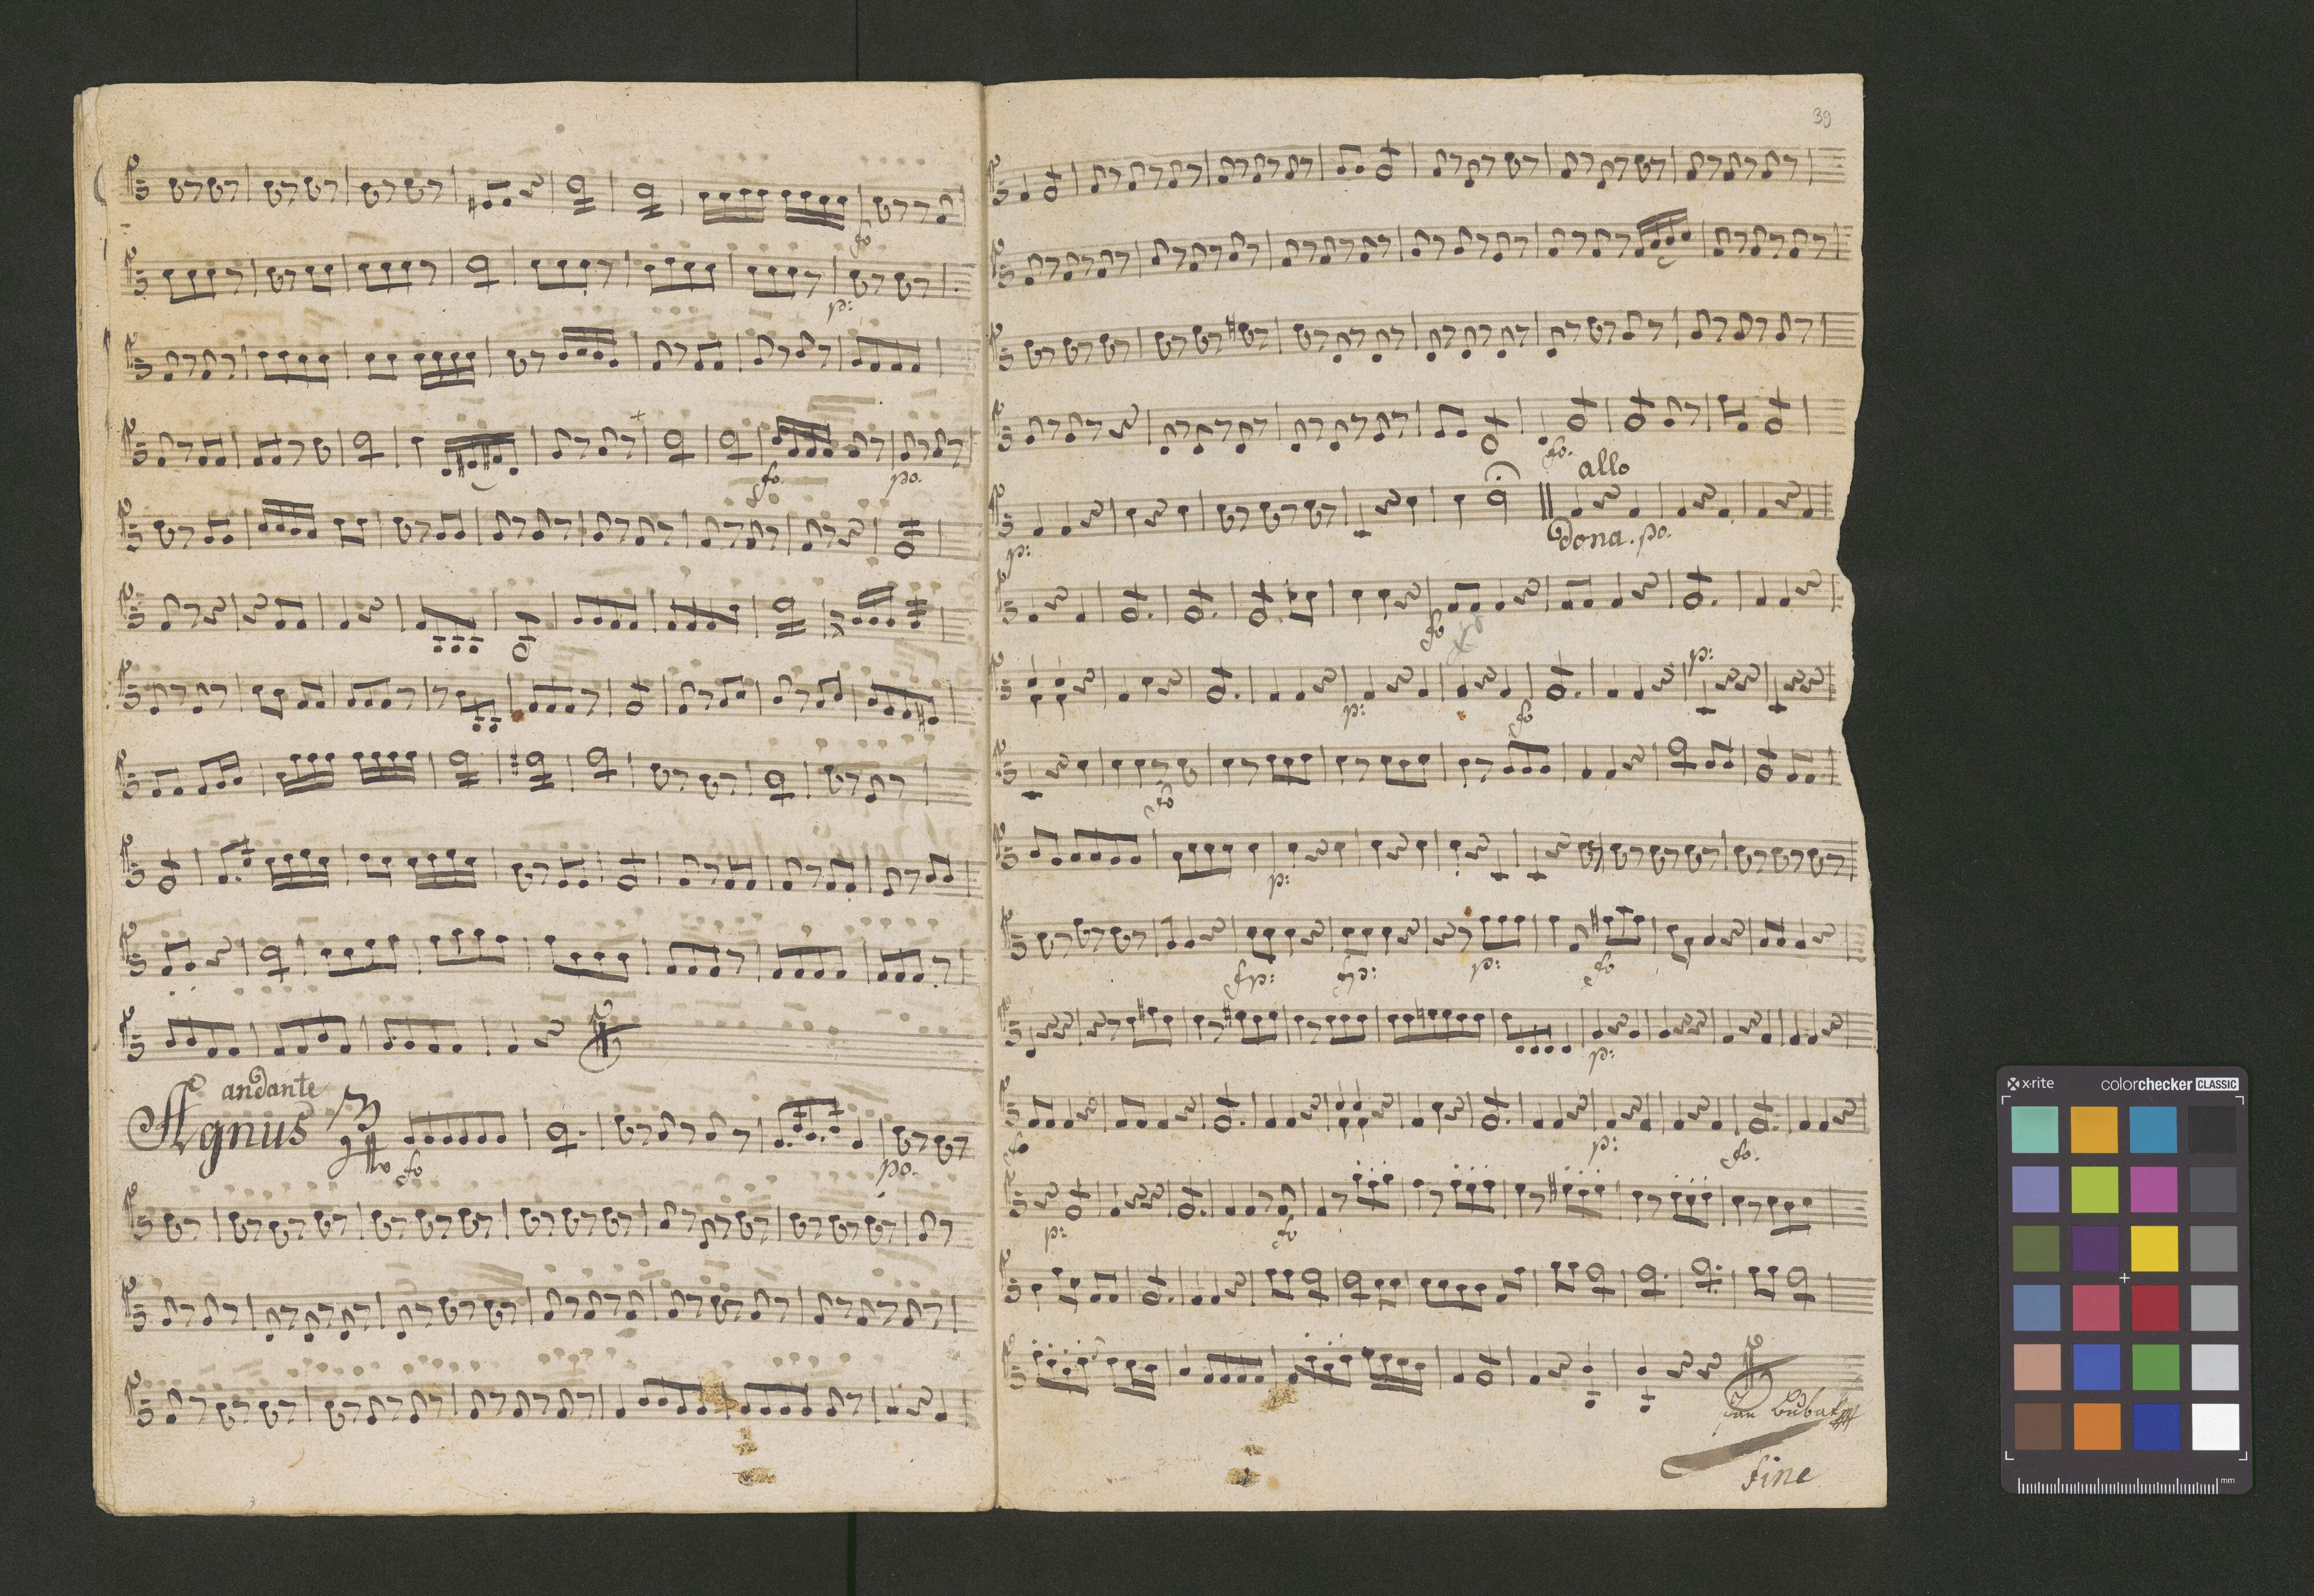 fo
p:
fo. po.
andante
Agnus fo po.
39
fo.
allo
p: dona. po.
fo
p:
p: fo
fo
p:
fp: fp: p: fo
p:
fo p: fo.
p: fo
fine
x-rite colorchecker CLASSIC
mm